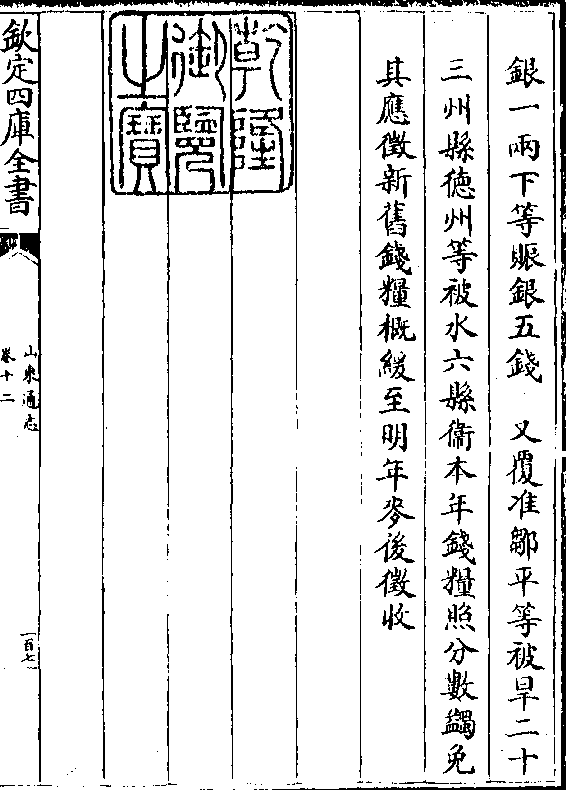 銀一兩下等賑銀五錢　又覆准鄒平等被旱二十
三州縣德州等被水六縣衞本年錢糧照分數蠲免
其應徵新舊錢糧概緩至明年麥後徵收
乾隆
御覽
之寶
欽定四庫全書
山東通志
卷十二
一百七